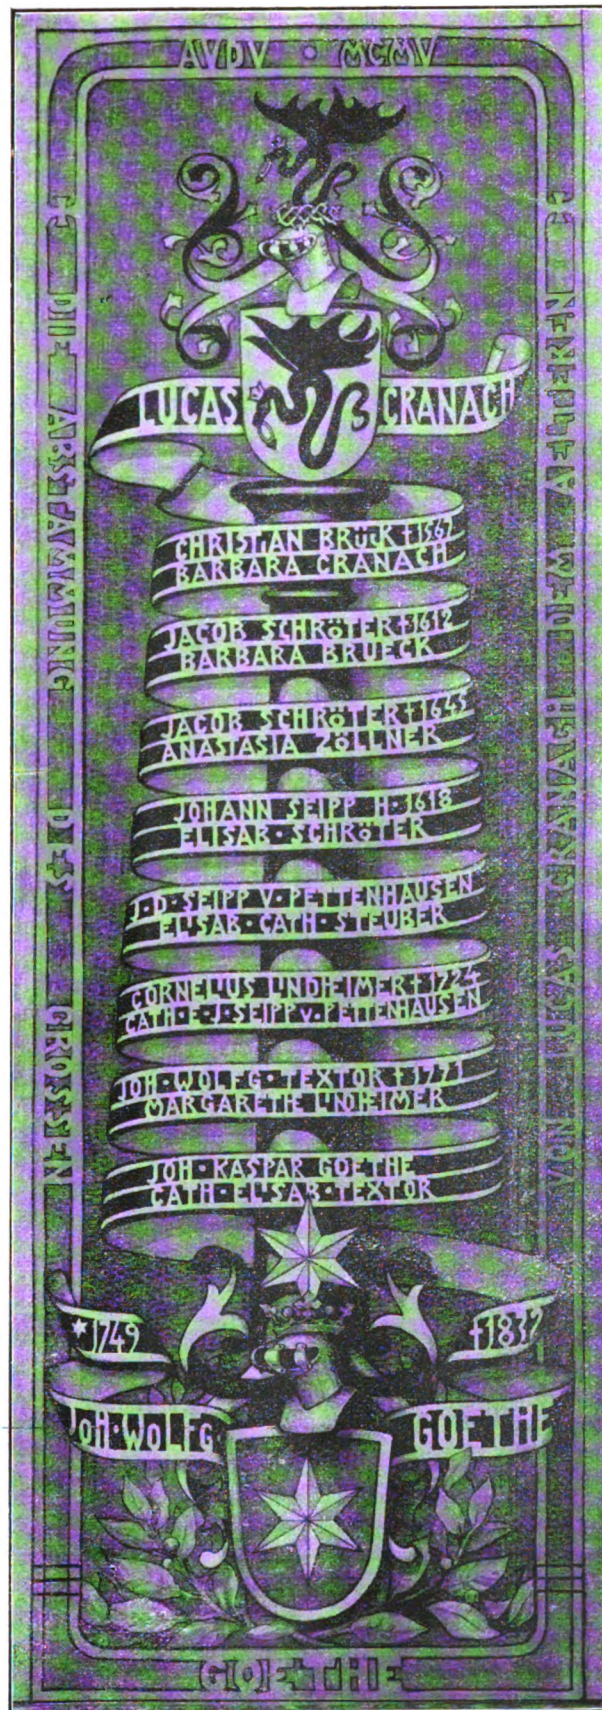 AVDV • MCMV
DIE ABSTAMMUNG DES GROSSEN
GOETHE
VON LUCAS CRANACH DEM AELTEREN
LUCAS CRANACH
CHRISTIAN BRüCK †1567
BARBARA CRANACH
JACOB SCHRöTER †1612
BARBARA BRUECK
JACOB SCHRöTER †1645
ANASTASIA ZöLLNER
JOHANN SEIPP H·1618
ELISAB·SCHRöTER
J·D·SEIPP V·PETTENHAUSEN
ELSAB·CATH·STEUBER
CORNELIUS LNDHEIMER †1724
CATH·E·J·SEIPP v·PETTENHAUSEN
JOH·WOLFG·TEXTOR †1771
MARGARETHE LNDHEIMER
JOH·KASPAR GOETHE
CATH·ELSAB·TEXTOR
*1749 †1832
JOH·WOLFG· GOETHE